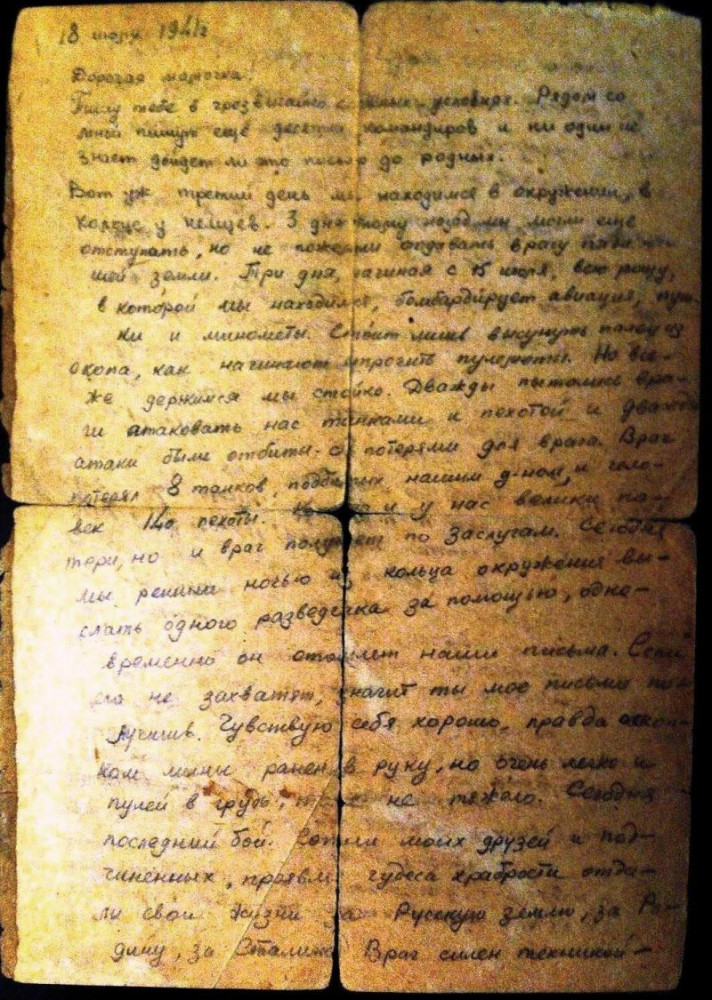 18 июля 1941г
Дорогая мамочка.
Пишу тебе в условиях. Рядом со
мной пишут еще десятки командиров и ни один не
знает дойдет ли это письмо до родных.
Вот уж третий день мы находимся в окружении, в
кольце у немцев. 3 дня тому назад мы могли еще
отступать, но не пожелали отдавать врагу пяди на-
шей земли. Три дня, начиная с 15 июля, всю рощу,
в которой мы находимся, бомбардирует авиация, пуш-
ки и минометы. Стоит лишь высунуть палец из
окопа, как начинают строчить пулеметы. Но все-
же держимся мы стойко. Дважды пытались вра-
ги атаковать нас танками и пехотой и дважды
атаки были отбиты с потерями для врага. Враг
потерял 8 танков, подбитых нашим д-ном, и чело-
век 140 пехоты. и у нас велики по-
тери, но и враг получает по заслугам. Сегодня
мы решили ночью из кольца окружения вы-
слать одного разведчика за помощью, одно-
временно он отошлет наши письма. Если
его не захватят, значит ты мое письмо по-
лучишь. Чувствую себя хорошо, правда оскол-
ком мины ранен в руку, но очень легко и
пулей в грудь, не тяжело. Сегодня
последний бой. Сотни моих друзей и под-
чиненных, проявляя чудеса храбрости отда-
ли свои жизни за Русскую землю, за Ро-
дину, за Сталина. Враг силен техникой-